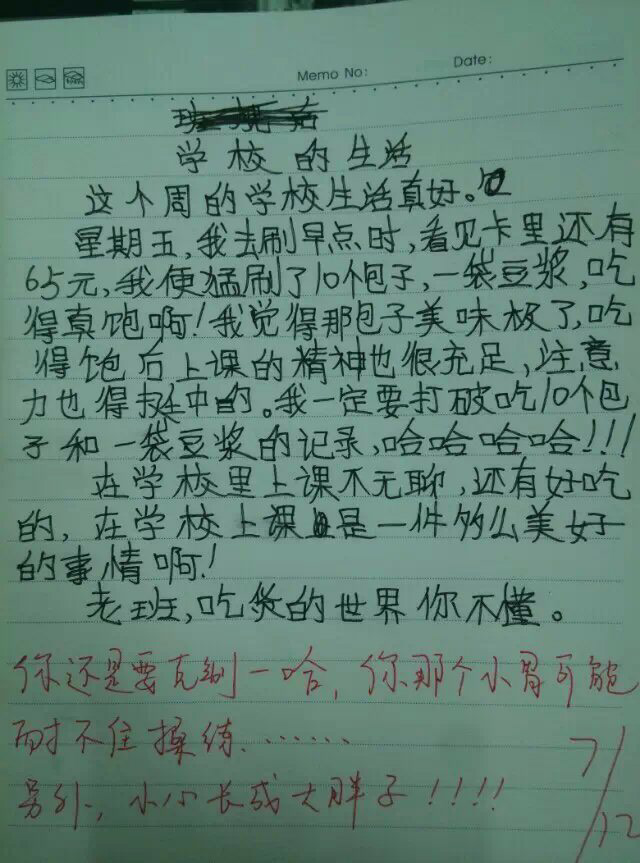 Memo No: Date:
学校的生活
这个周的学校生活真好。
星期五,我去刷早点时,看见卡里还有
65元,我便猛刷了10个包子,一袋豆浆,吃
得真饱啊!我觉得那包子美味极了,吃
得饱后上课的精神也很充足,注意
力也得挺中的。我一定要打破吃10个包
子和一袋豆浆的记录,哈哈哈哈!!!
在学校里上课不无聊,还有好吃
的,在学校上课是一件多么美好
的事情啊!
老班,吃货的世界你不懂。
你还是要克制一哈,你那个小胃可能
耐不住操练.……
另外,小心长成大胖子!!!!
7/12